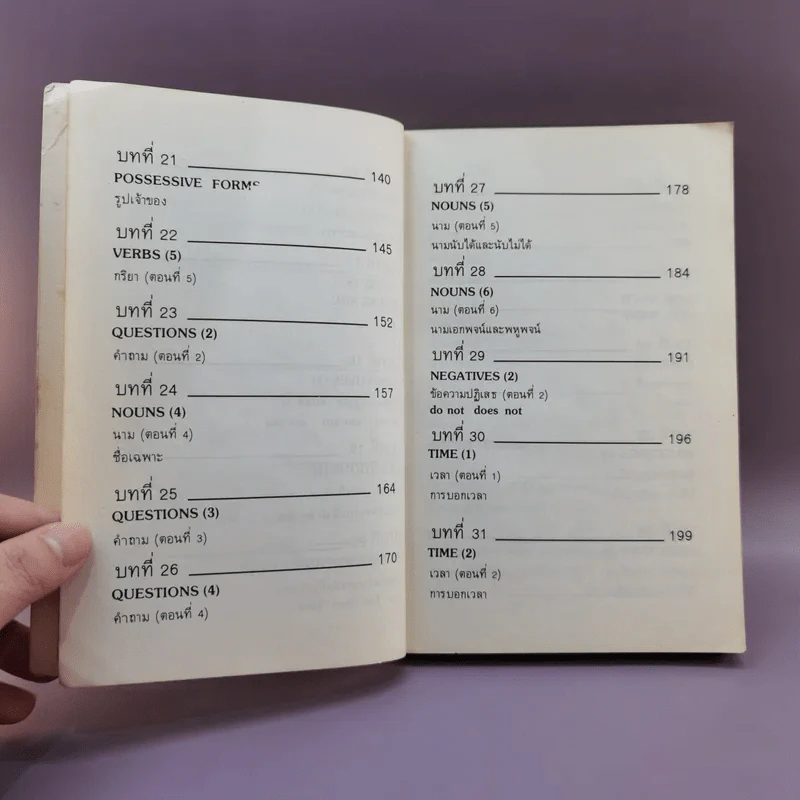 บทที่ 21 140
POSSESSIVE FORMS
รูปเจ้าของ
บทที่ 22 145
VERBS (5)
กริยา (ตอนที่ 5)
บทที่ 23 152
QUESTIONS (2)
คำถาม (ตอนที่ 2)
บทที่ 24 157
NOUNS (4)
นาม (ตอนที่ 4)
ชื่อเฉพาะ
บทที่ 25 164
QUESTIONS (3)
คำถาม (ตอนที่ 3)
บทที่ 26 170
QUESTIONS (4)
คำถาม (ตอนที่ 4)
บทที่ 27 178
NOUNS (5)
นาม (ตอนที่ 5)
นามนับได้และนับไม่ได้
บทที่ 28 184
NOUNS (6)
นาม (ตอนที่ 6)
นามเอกพจน์และพหูพจน์
บทที่ 29 191
NEGATIVES (2)
ข้อความปฏิเสธ (ตอนที่ 2)
do not does not
บทที่ 30 196
TIME (1)
เวลา (ตอนที่ 1)
การบอกเวลา
บทที่ 31 199
TIME (2)
เวลา (ตอนที่ 2)
การบอกเวลา